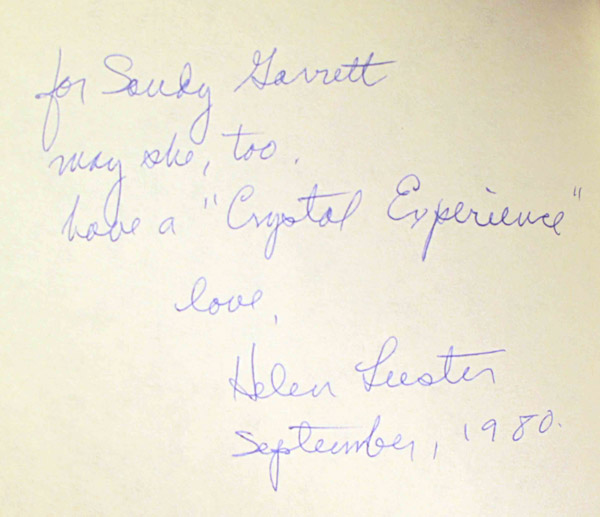 for Sandy Garrett
may she, too,
have a "Crystal Experience"
love,
Helen
September, 1980.